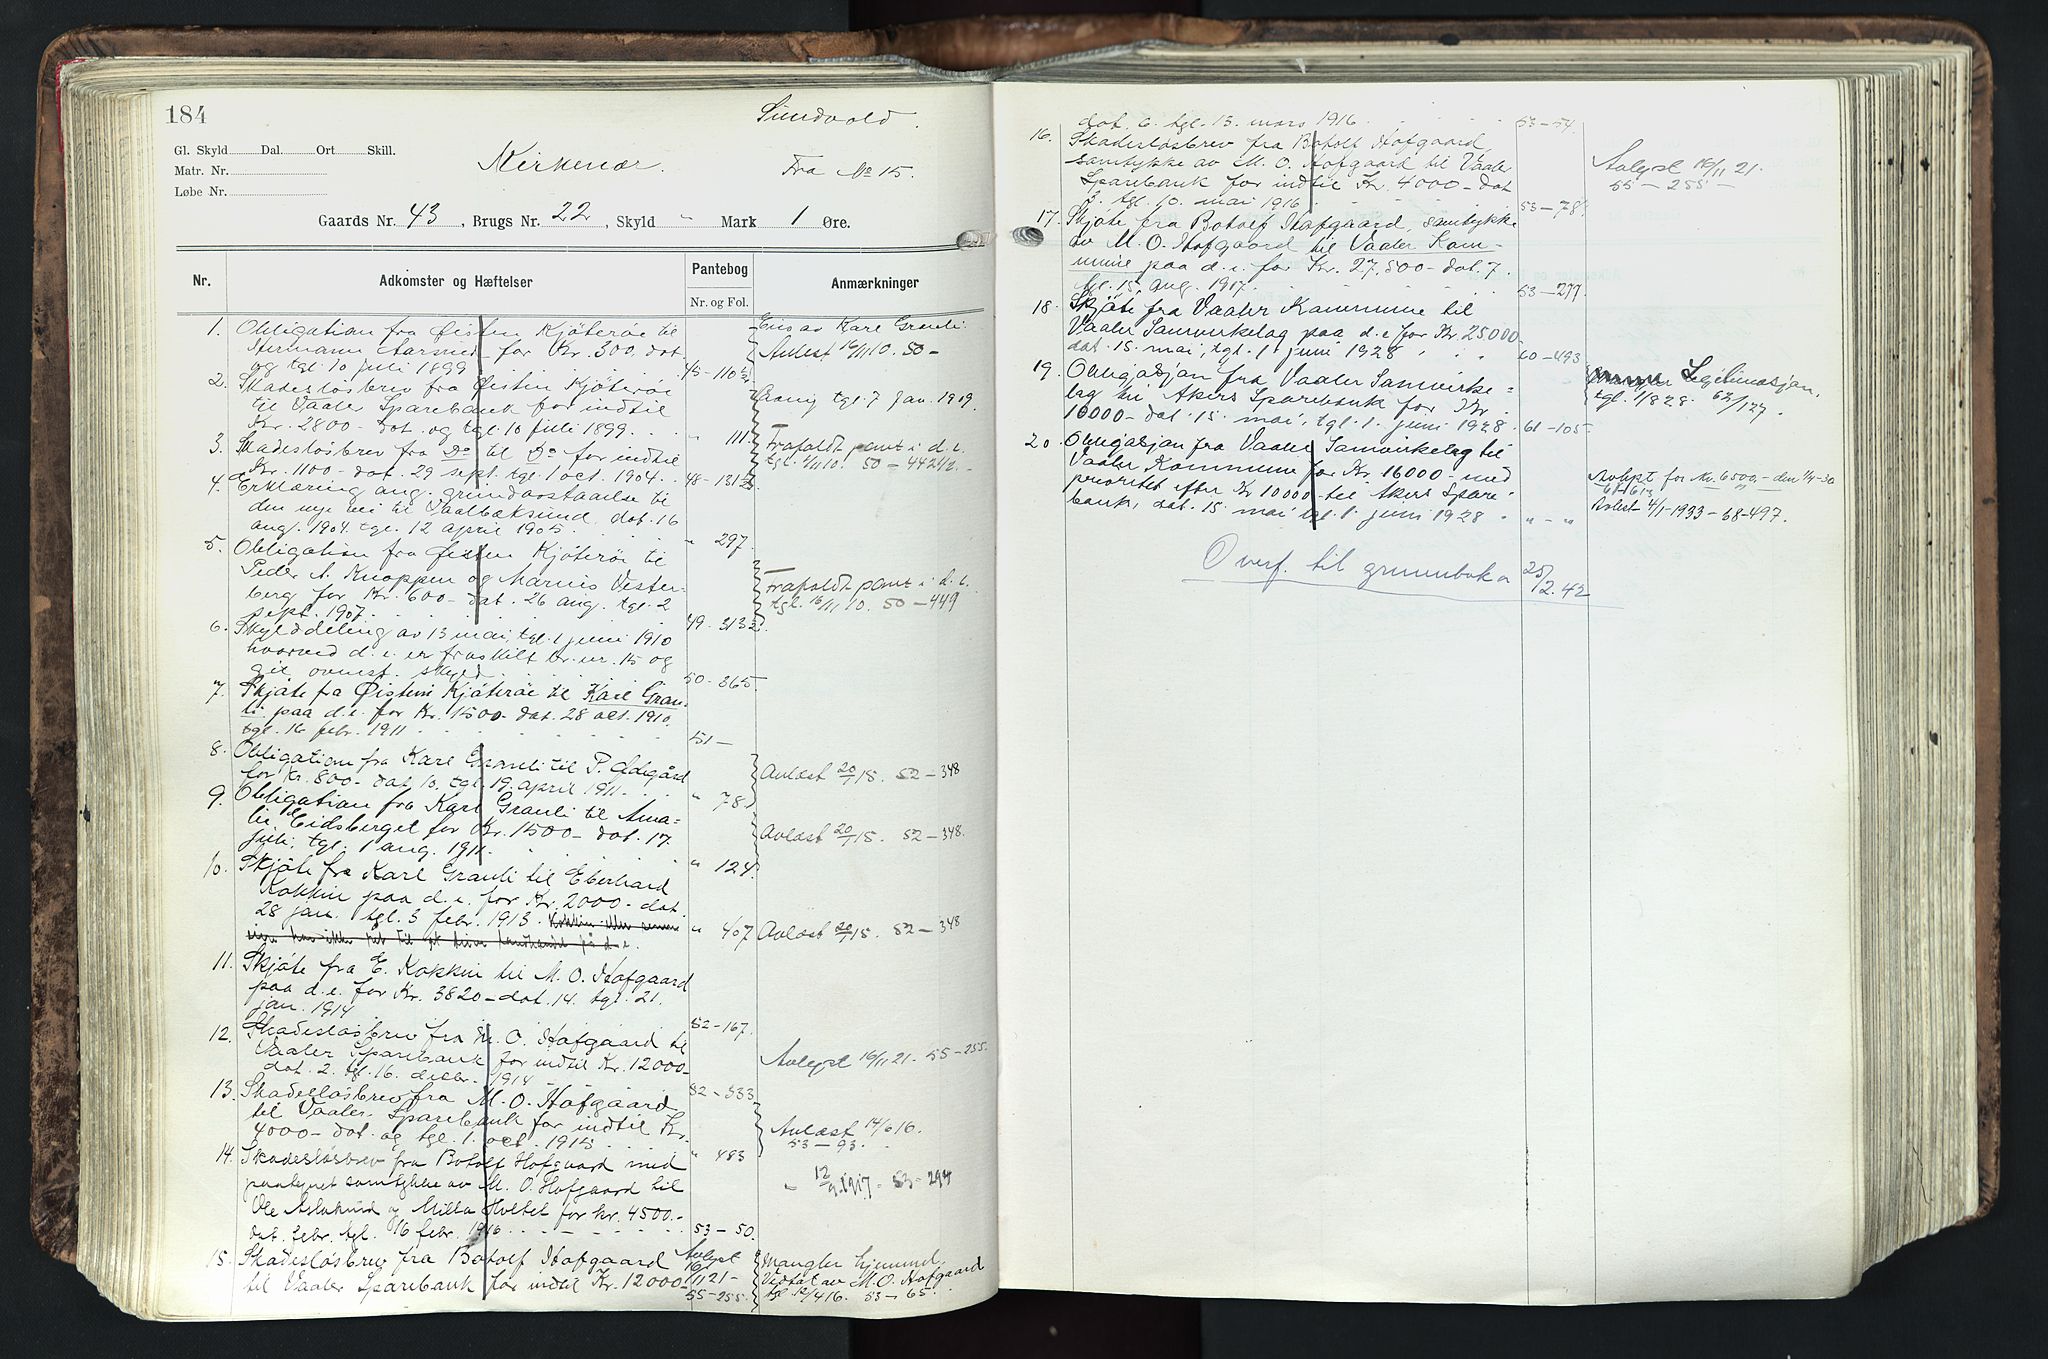 184
Sundvold.
Gl. Skyld Dal. Ort Skill.
Kirkenær.
Fra No 15.
Matr. Nr.
Løbe Nr.
Gaards Nr. 43, Brugs Nr. 22, Skyld " Mark 1 Øre.
Nr. Adkomster og Hæftelser Pantebog Anmærkninger
Nr. og Fol.
1. Obligation fra Øistein Kjøterøe til
Hermann Aarsnes for Kr. 300. dat.
og tgl. 10 juli 1899 45-110½
Eies av Karl Granli.
Avlest 16/11 10. 50-
2. Skadesløsbrev fra Øistein Kjøterøe
til Vaaler Sparebank for indtil
Kr. 2800- dat. og tgl. 10 juli 1899. " 111.
tgl. 7 jan. 1909.
3. Skadesløsbrev fra Do til Do for indtil
Kr. 1100- dat. 29 sept. tgl. 1 oct. 1904. 48-131½
Frafaldt pant i d. e.
tgl. 1/11 10. 50-442½.-
4. Erklæring ang. grundavstaaelse til
den nye vei til Vaalbæksund. dat. 16
aug. 1904. tgl. 12 april 1905. " 297.
5. Obligation fra Øistein Kjøterøe til
Peder A. Knoppen og Marnis Vester-
berg for Kr. 600- dat. 26 aug. tgl. 2
sept. 1907. 49-313½
Frafaldt pant i d. e.
tgl. 16/11 10. 50-449
6. Skylddeling av 13 mai, tgl. 1 juni 1910
hvorved d. e. er fraskilt br. nr. 15 og
git ovenst. skyld. 50-365.
7. Skjøte fra Øistein Kjøterøe til Karl Gran-
li paa d. e. for Kr. 1500- dat. 28 oct. 1910,
tgl. 16 febr. 1911 51-
8. Obligation fra Karl Granli til P. Ødegård
for Kr. 800- dat. 10. tgl. 19. april 1911. " 78.
Avlæst 20/1 15. 52-348
9. Obligation fra Karl Granli til Ama-
lie Eidsberget for Kr. 1500- dat. 17.
juli, tgl. 1 aug. 1911. " 124.
Avlæst 20/1 15. 52-348.
10. Skjøte fra Karl Granli til Eberhard
Kokkin paa d. e. for Kr. 2000- dat.
28 jan. tgl. 3 febr. 1913. Kokkin eller senere " 407
eiere har ikke ret til på d. e.
Avlæst 20/1 15. 52-348
11. Skjøte fra E. Kokkin til M. O. Hofgaard
paa d. e. for Kr. 3820- dat. 14. tgl. 21.
jan. 1914 52-167.
12. Skadesløsbrev fra M. O. Hofgaard til
Vaaler Sparebank for indtil Kr. 12000-
dat. 2. tgl. 16. decbr. 1914 52-333
Avlyst 16/11 21. 55-255.
13. Skadesløsbrev fra M. O. Hofgaard
til Vaaler Sparebank for indtil Kr.
4000- dat. og tgl. 1. oct. 1915 " 483
Avlæst 14/6 16.
53-93.
14. Skadesløsbrev fra Botolf Hofgaard med
paategnet samtykke av M. O. Hofgaard til
Ole Aslaksrud og Milla Holtet for kr. 4500.-
dat. febr. tgl. 16 febr. 1916 53-50.
" 12/9 1917 - 53-294
15. Skadesløsbrev fra Botolf Hofgaard
til Vaaler Sparebank for indtil Kr. 12000-
Avlyst
16/11 21-
55-255.
Mangler hjemmel.
Vedtat av M. O. Hofgaard
tgl. 12/4 16. 53-65.
dat. 6. tgl. 13. mars 1916. 53-54.
16. Skadesløsbrev fra Botolf Hofgaard,
samtykke av M. O. Hofgaard til Vaaler
Sparebank for indtil Kr. 4000- dat.
3. tgl. 10. mai 1916. 53-78.
Avlyst 16/11 21.
55-255-
17. Skjøte fra Botolf Hofgaard, samtykke
av M. O. Hofgaard til Vaaler Kom-
mune paa d. e. for Kr. 27,500- dat. 7.
tgl. 15. aug. 1917. 53-277.
18. Skjøte fra Vaaler Kommune til
Vaaler Samvirkelag paa d. e. for Kr. 25000-
dat. 15. mai, tgl. 1 juni 1928 60-493
19. Obligasjon fra Vaaler Samvirke-
lag til Akers Sparebank for Kr.
10000- dat. 15. mai, tgl. 1. juni 1928 61-105.
Legitimasjon,
tgl. 1/8 28. 62/127.
20. Obligasjon fra Vaaler Samvirkelag til
Vaaler Kommune for Kr. 16000- med
prioritet efter Kr 10000- til Akers Spare-
bank, dat. 15. mai tgl. 1. juni 1928. " - "
Avlyst for kr. 6500,- den 1/4-30
61-613
Avlest 4/1-1933-68-497.
Overf. til grunnboka 25/2.42